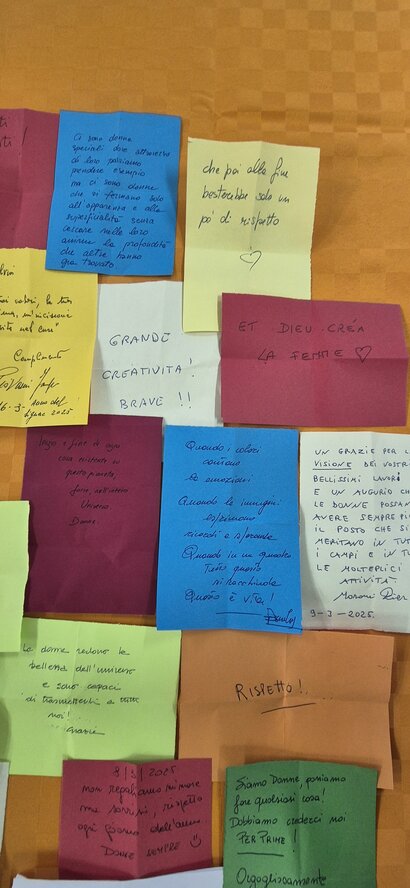 Ci sono donne
speciali dove attraverso
di loro possiamo
prendere esempio
ma ci sono donne
che si fermano solo
all'apparenza e alla
superficialità senza
cercare nelle loro
anime la profondità
che altre hanno
già trovato
che poi alla fine
basterebbe solo un
pò di rispetto
Complimenti
16-3-
2025
GRANDE
CREATIVITA'!
BRAVE !!
ET DIEU CRÉA
LA FEMME
Inizio e fine di ogni
cosa esistente su
questo pianeta,
forse, nell'intero
Universo
Donna
Quando i colori
cantano
le emozioni
Quando le immagini
esprimono
ricordi e speranze
Quando in un quadro
Tutto questo
si racchiude
Questo è vita!
UN GRAZIE PER L
VISIONE DEI VOSTR
BELLISSIMI LAVORI
E UN AUGURIO CH
LE DONNE POSSAN
AVERE SEMPRE PI
IL POSTO CHE SI
MERITANO IN TUT
I CAMPI E IN TU
LE MOLTEPLICI
ATTIVITÀ.
9-3-2025.
Le donne vedono la
bellezza dell'universo
e sono capaci
di trasmetterla a tutti
noi!
Grazie
RISPETTO!..
8/3/2025
non regaliamo mimose
ma sorrisi, rispetto
ogni giorno dell'anno
DONNE SEMPRE
Siamo Donne, possiamo
fare qualsiasi cosa!
Dobbiamo crederci noi
PER PRIME!
Orgogliosamente